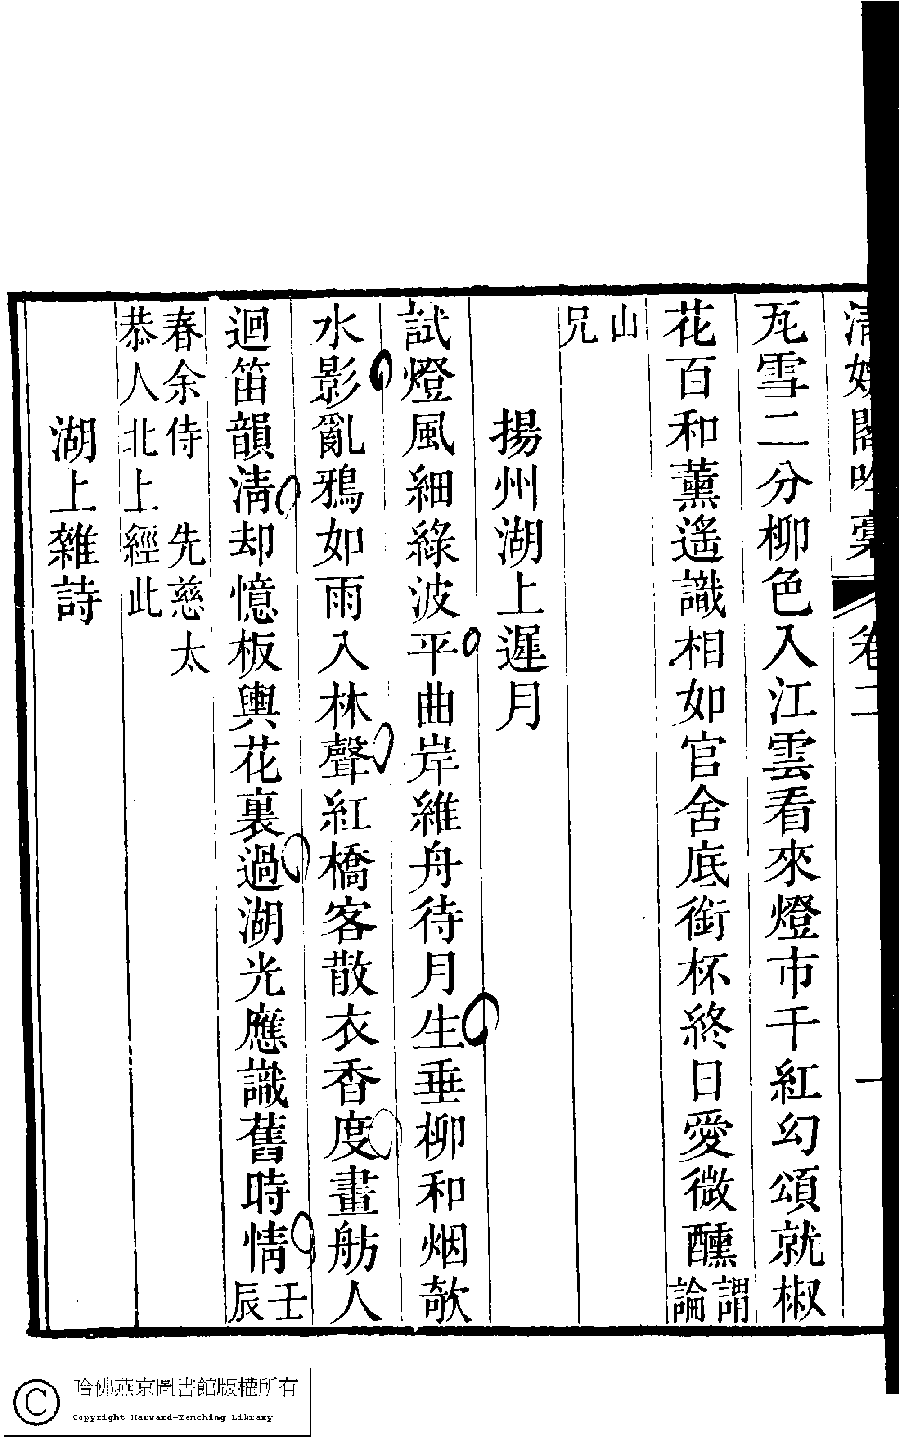 清娛閣吟稾 卷二 一
瓦雪二分柳色入江雲看來燈市千紅幻頌就椒
花百和薰遙識相如官舍底銜杯終日愛微醺謂論
山兄
揚州湖上遲月
試燈風細綠波平曲岸維舟待月生垂柳和烟欹
水影亂鴉如雨入林聲紅橋客散衣香度畫舫人
迴笛韻淸却憶板輿花裏過湖光應識舊時情壬辰
春余侍 先慈太
恭人北上經此
湖上雜詩
哈佛燕京圖書館版權所有
Copyright Harvard-Yenching Library